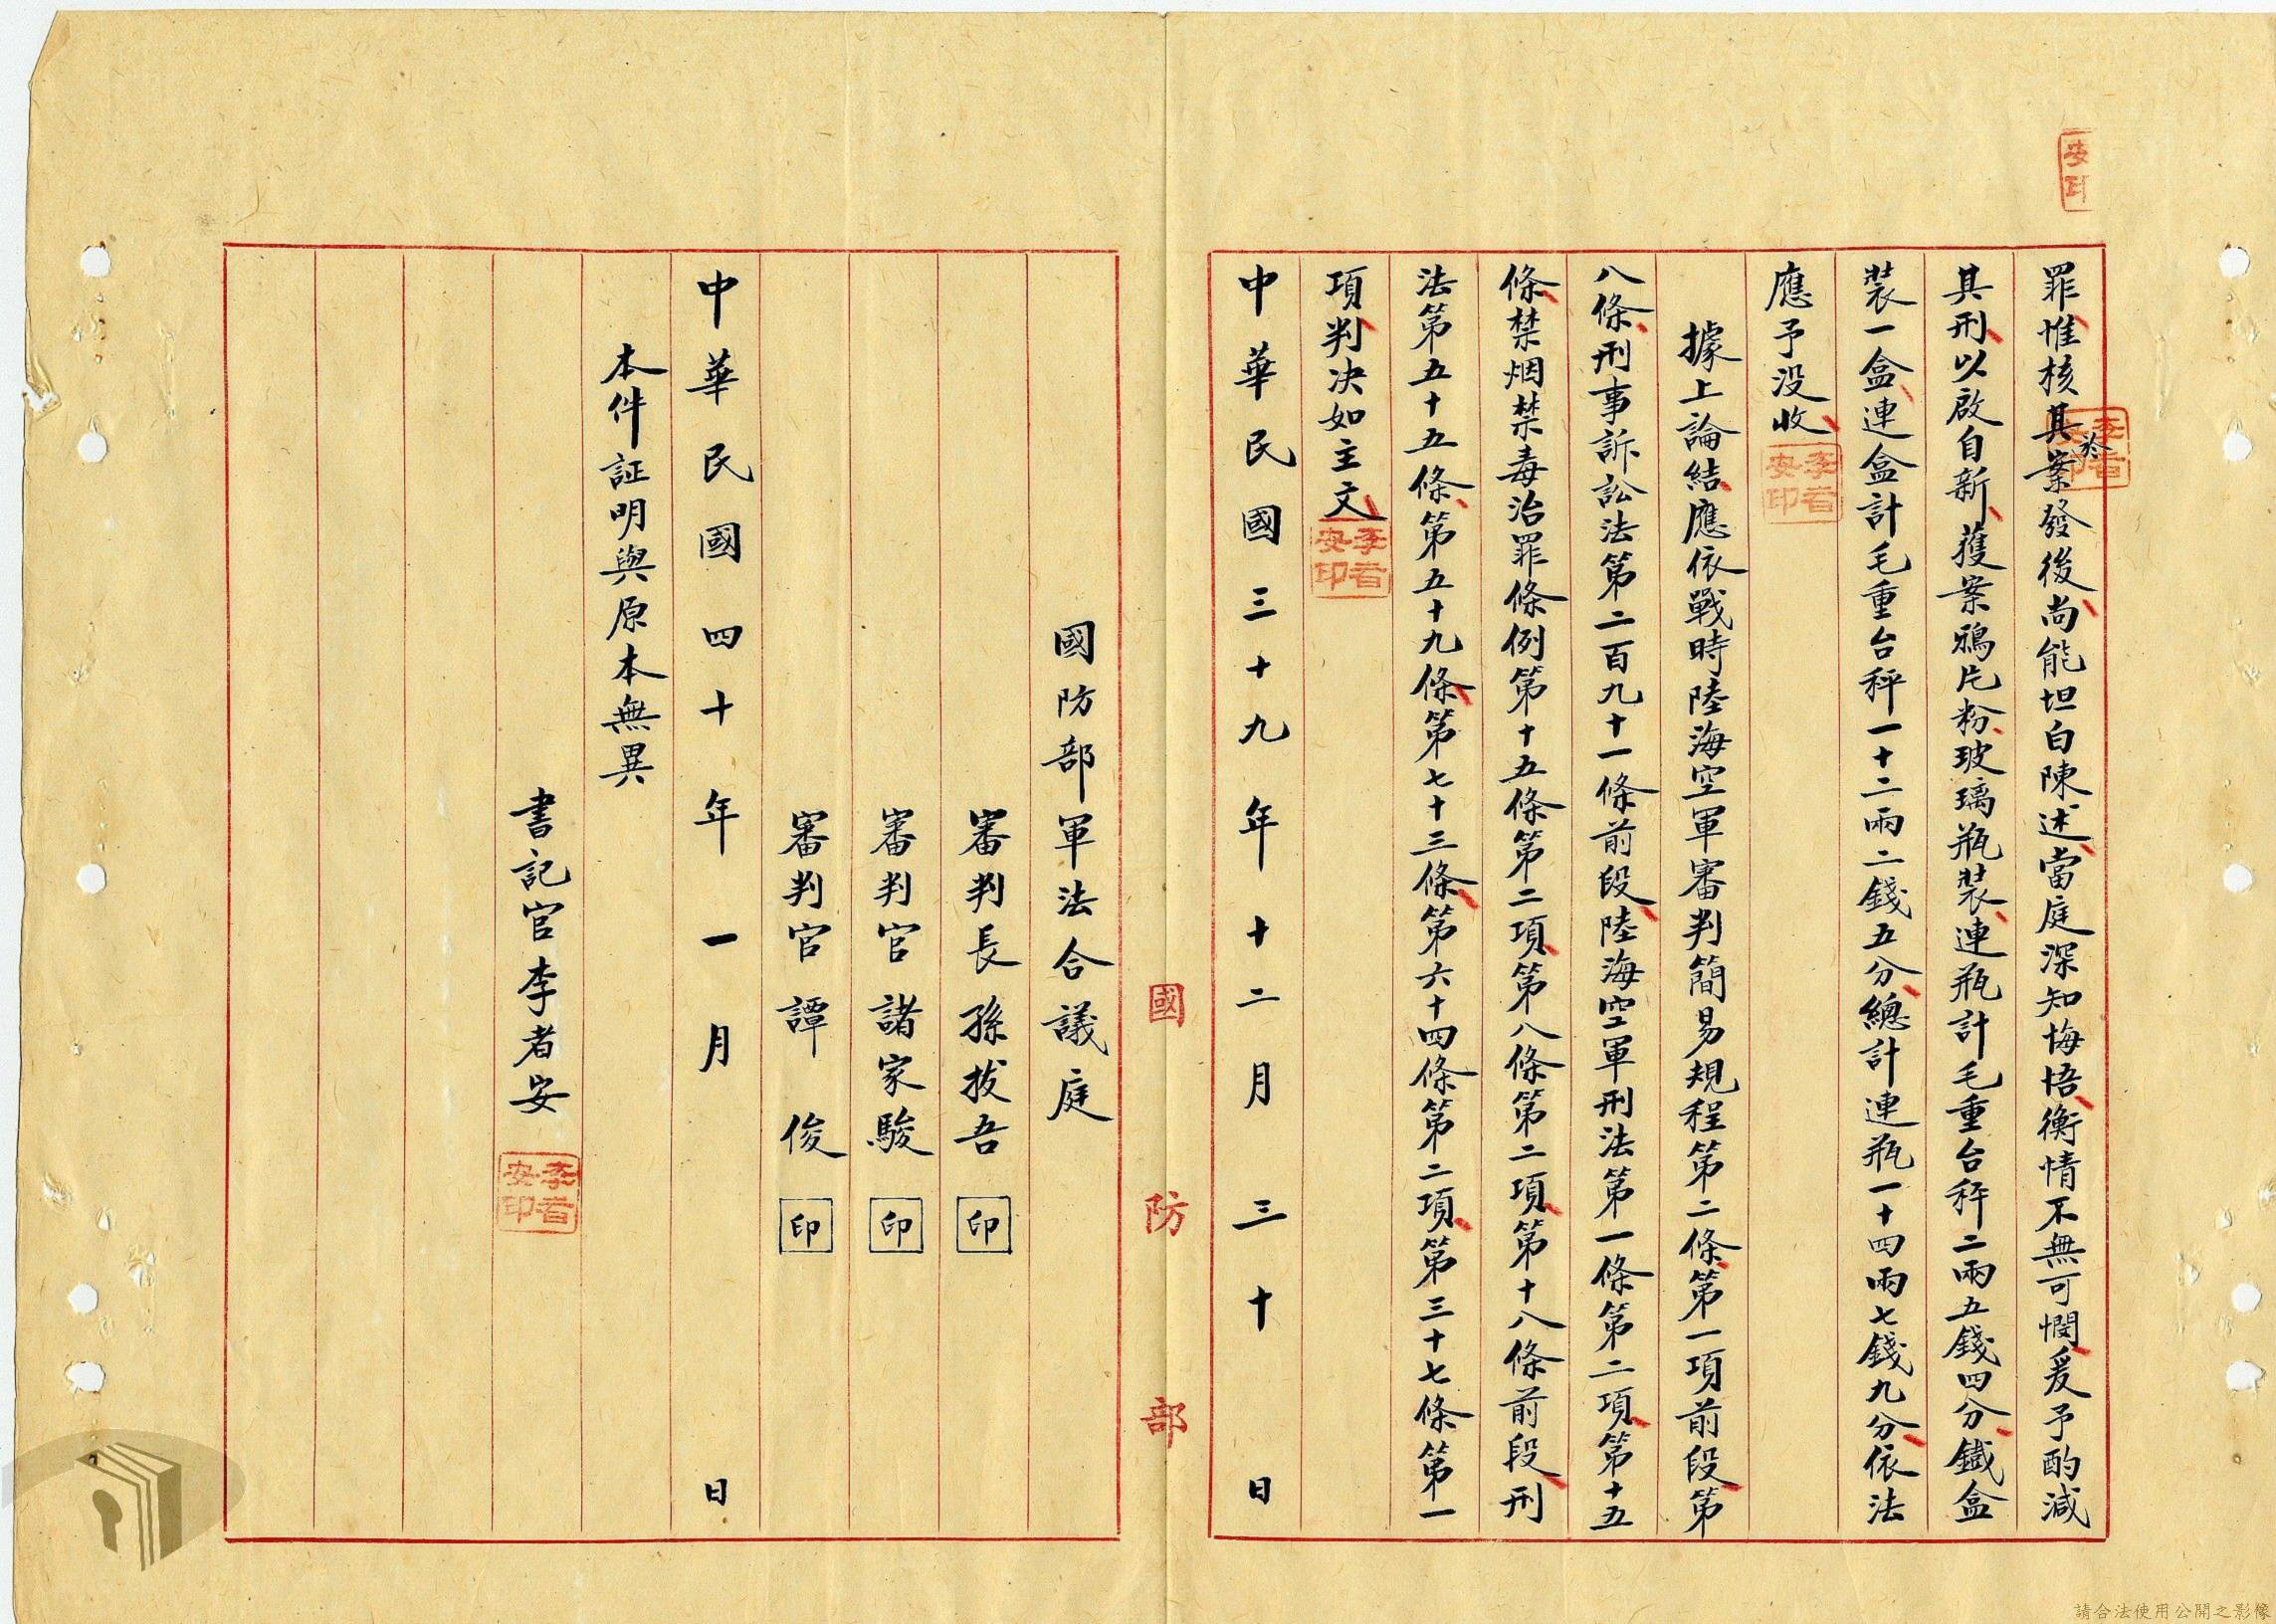 安印
罪惟核其於案發後尚能坦白陳述當庭深知悔悟衡情不無可憫爰予酌減
李者安印
其刑以啟自新獲案鴉片粉玻璃瓶裝連瓶計毛重台秤二兩五錢四分鐵盒
裝一盒連盒計毛重台秤一十二兩二錢五分總計連瓶一十四兩七錢九分依法
應予没收
李者安印
據上論結應依戰時陸海空軍審判簡易規程第二條第一項前段第
八條刑事訴訟法第二百九十一條前段陸海空軍刑法第一條第二項第十五
條禁烟禁毒治罪條例第十五條第二項第八條第二項第十八條前段刑
法第五十五條第五十九條第七十三條第六十四條第二項第三十七條第一
項判决如主文
李者安印
中華民國三十九年十二月三十日
國防部
國防部軍法合議庭
審判長孫拔吾印
審判官諸家駿印
審判官譚俊印
中華民國四十年一月 日
本件証明與原本無異
書記官李者安
李者安印
請合法使用公開之影像